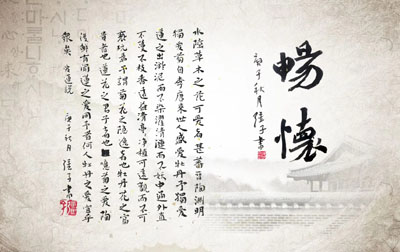 暢懷
庚午秋月佳子書
水陸草木之花可愛者甚蕃晉陶淵明
獨愛菊自李唐來世人盛愛牡丹予獨愛
蓮之出淤泥而不染濯清漣而不妖中通外直
不蔓不枝香遠益清亭亭淨植可遠觀而不可
褻玩焉予謂菊花之隱逸者也牡丹花之富
貴者也蓮花之君子者也噫菊之愛陶
後鮮有聞蓮之愛同予者何人牡丹之愛宜乎
衆矣 愛蓮說 庚午秋月 佳子書